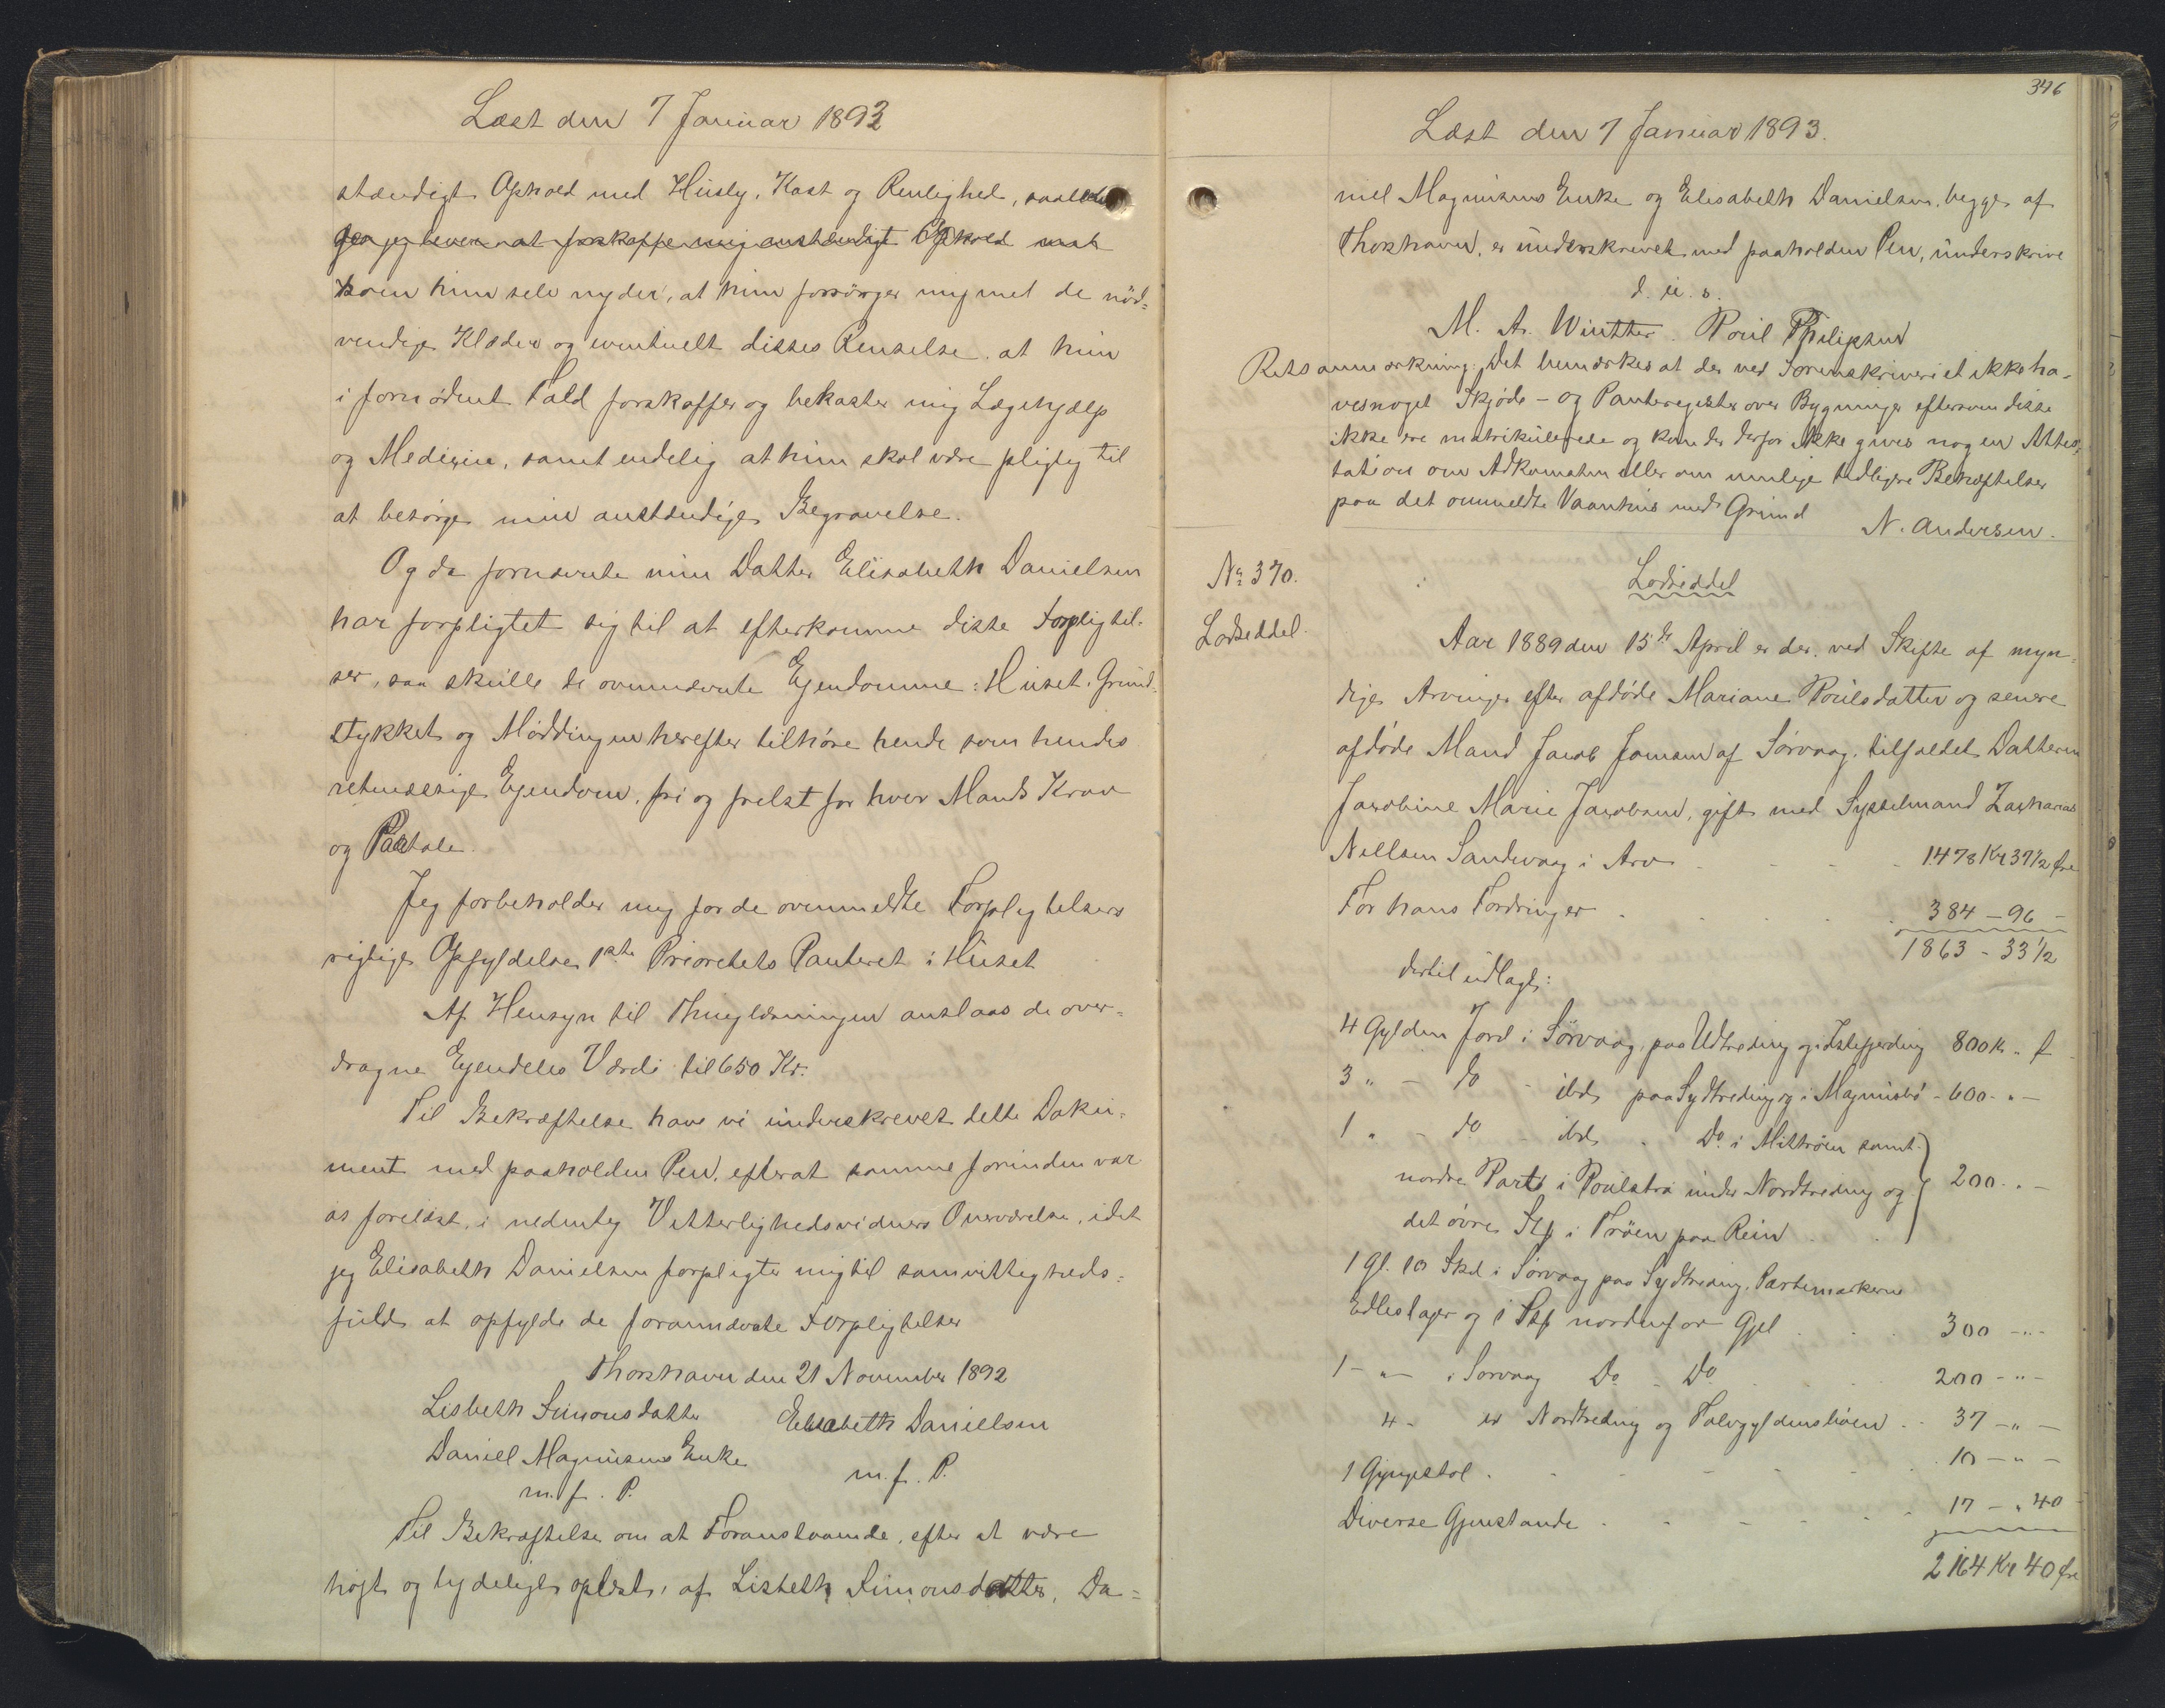 Læst den 7 Januar 1893
stændigt Ophold med Husly, Kost og Renlighed, saaledes
som hun selv nyder, at hun forsörger mig med de nöd-
vendige Klæder og eventuelt disses Renselse, at hun
i fornödent Fald forskaffer og bekoster mig Lægehjælp
og Medicin, samt endelig at hun skal være pligtig til
at besörge min anstændige Begravelse.
Og da fornævnte min Datter Elisabeth Danielsen
har forpligtet sig til at efterkomme disse Forpligtel-
ser, saa skulle de ovennævnte Ejendomme: Huset, Grund-
stykket og Möddingen herefter tilhöre hende som hendes
retmæssige Ejendom, fri og frelst for hver Mands Krav
og Paatale.
Jeg forbeholder mig for de ovenmeldte Forpligtelsers
rigtige Opfyldelse 1ste Prioritets Panteret i Huset
Af Hensyn til Thinglæsningen anslaas de over-
dragne Ejendeles Værdi til 650 Kr.
Til Bekræftelse have vi underskrevet dette Doku-
ment med paaholden Pen, efterat samme forinden var
os forelæst, i nedenteg Vitterlighedsvidners Overværelse, idet
jeg Elisabeth Danielsen forpligter mig til samvittigheds-
fuldt at opfylde de forannævnte Forpligtelser
Thorshavn den 21 November 1892
Lisbeth Simonsdatter Elisabeth Danielsen
Daniel Magnusens Enke m. f. P.
m. f. P.
Til Bekræftelse om at Foranstaaende, efter at være
höjt og tydeligt oplæst, af Lisbeth Simonsdatter, Da-
346
Læst den 7 Januar 1893.
niel Magnusens Enke og Elisabeth Danielsen, begge af
Thorshavn, er underskrevet med paaholden Pen, underskrive
d. u. s.
M. A. Winther. Poul Philipsen
Retsanmærkning: Det bemærkes at der ved Sorenskriveriet ikke ha-
ves noget Skjöde- og Panteregister over Bygninger eftersom disse
ikke ere matrikulerede og kan der derfor ikke gives nogen Attes-
tation om Adkomsten eller om mulige tidligere Behæftelser
paa det ommeldte Vaanhus med Grund N. Andersen.
No 370. Lodseddel
Lodseddel.
Aar 1889 den 15de April er der, ved Skifte af myn-
dige Arvinger efter afdöde Mariane Poulsdatter og senere
afdöde Mand Jacob Joensen af Sörvaag, tilfaldet Datteren
Jacobine Marie Jacobsen, gift med Sysselmand Zacharias
Nielsen Sandevaag i Arv 1478 Kr 37½ Øre
For hans Fordringer 384 - 96 -
1863 - 33½
dertil udlagt:
4 Gylden Jord i Sörvaag, paa Udtreding og 800 Kr " f
3 " - do - ibd paa Sydtreding og i Magnusbö - 600 - " -
1 " - do - ibd - Do i samt
nordre Part i under Nordtreding og 200 " -
det övre Stk i Tröen paa Rein
1 Gl. 10 Skd i Sörvaag paa Sydtreding,
og 1 Stk nordenfor Gjel 300 - " -
1 - " - i Sorvaag Do - Do 200 - " -
4 - Nordtreding og 37 - " -
1 Gyngestol 10 - " -
Diverse Gjenstande 17 - " 40
2164 Kr 40 Øre